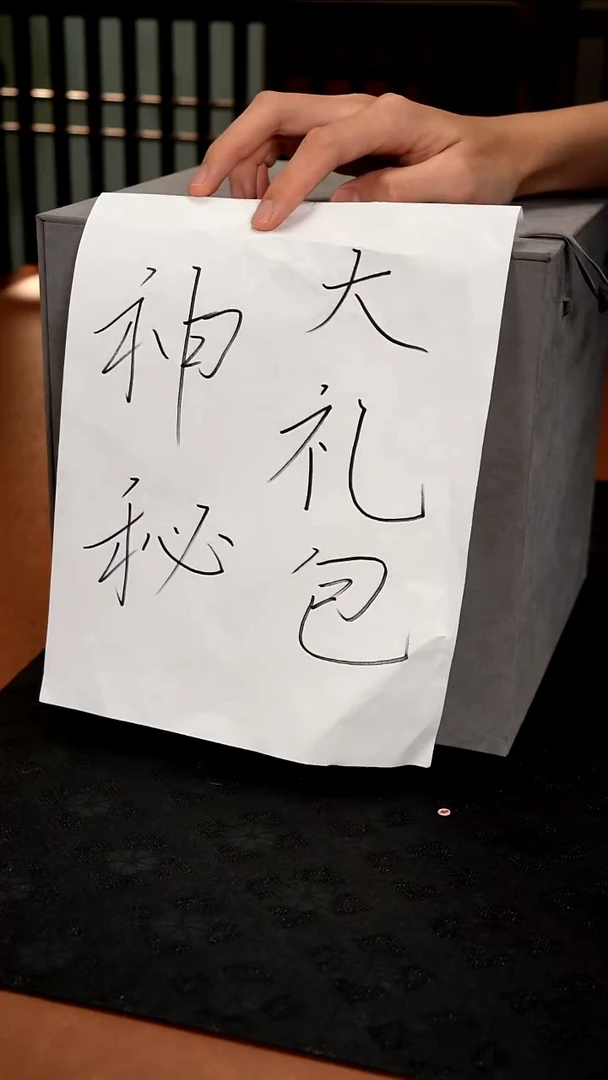 神秘
大礼包